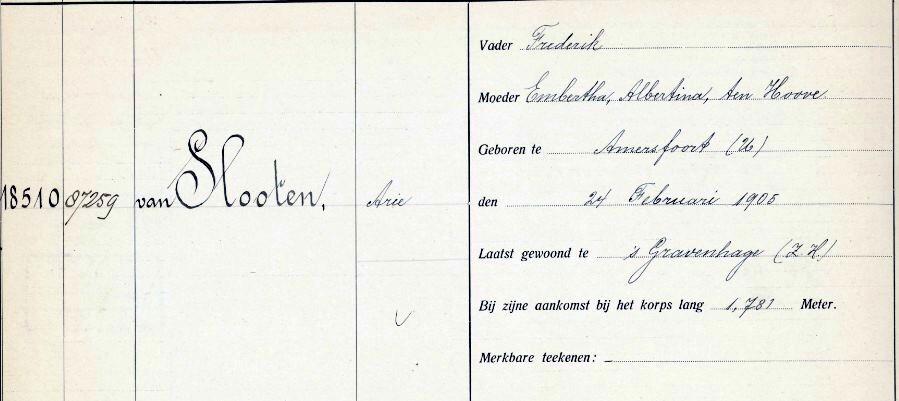 Vader Frederik
Moeder Embertha, Albertina, ten Hoove
Geboren te Amersfoort (U)
18510 87259 van Hooten, Arie
den 24 Februari 1905
Laatst gewoond te 's Gravenhage (Z.H.)
Bij zijne aankomst bij het korps lang 1,781 Meter.
Merkbare teekenen: —